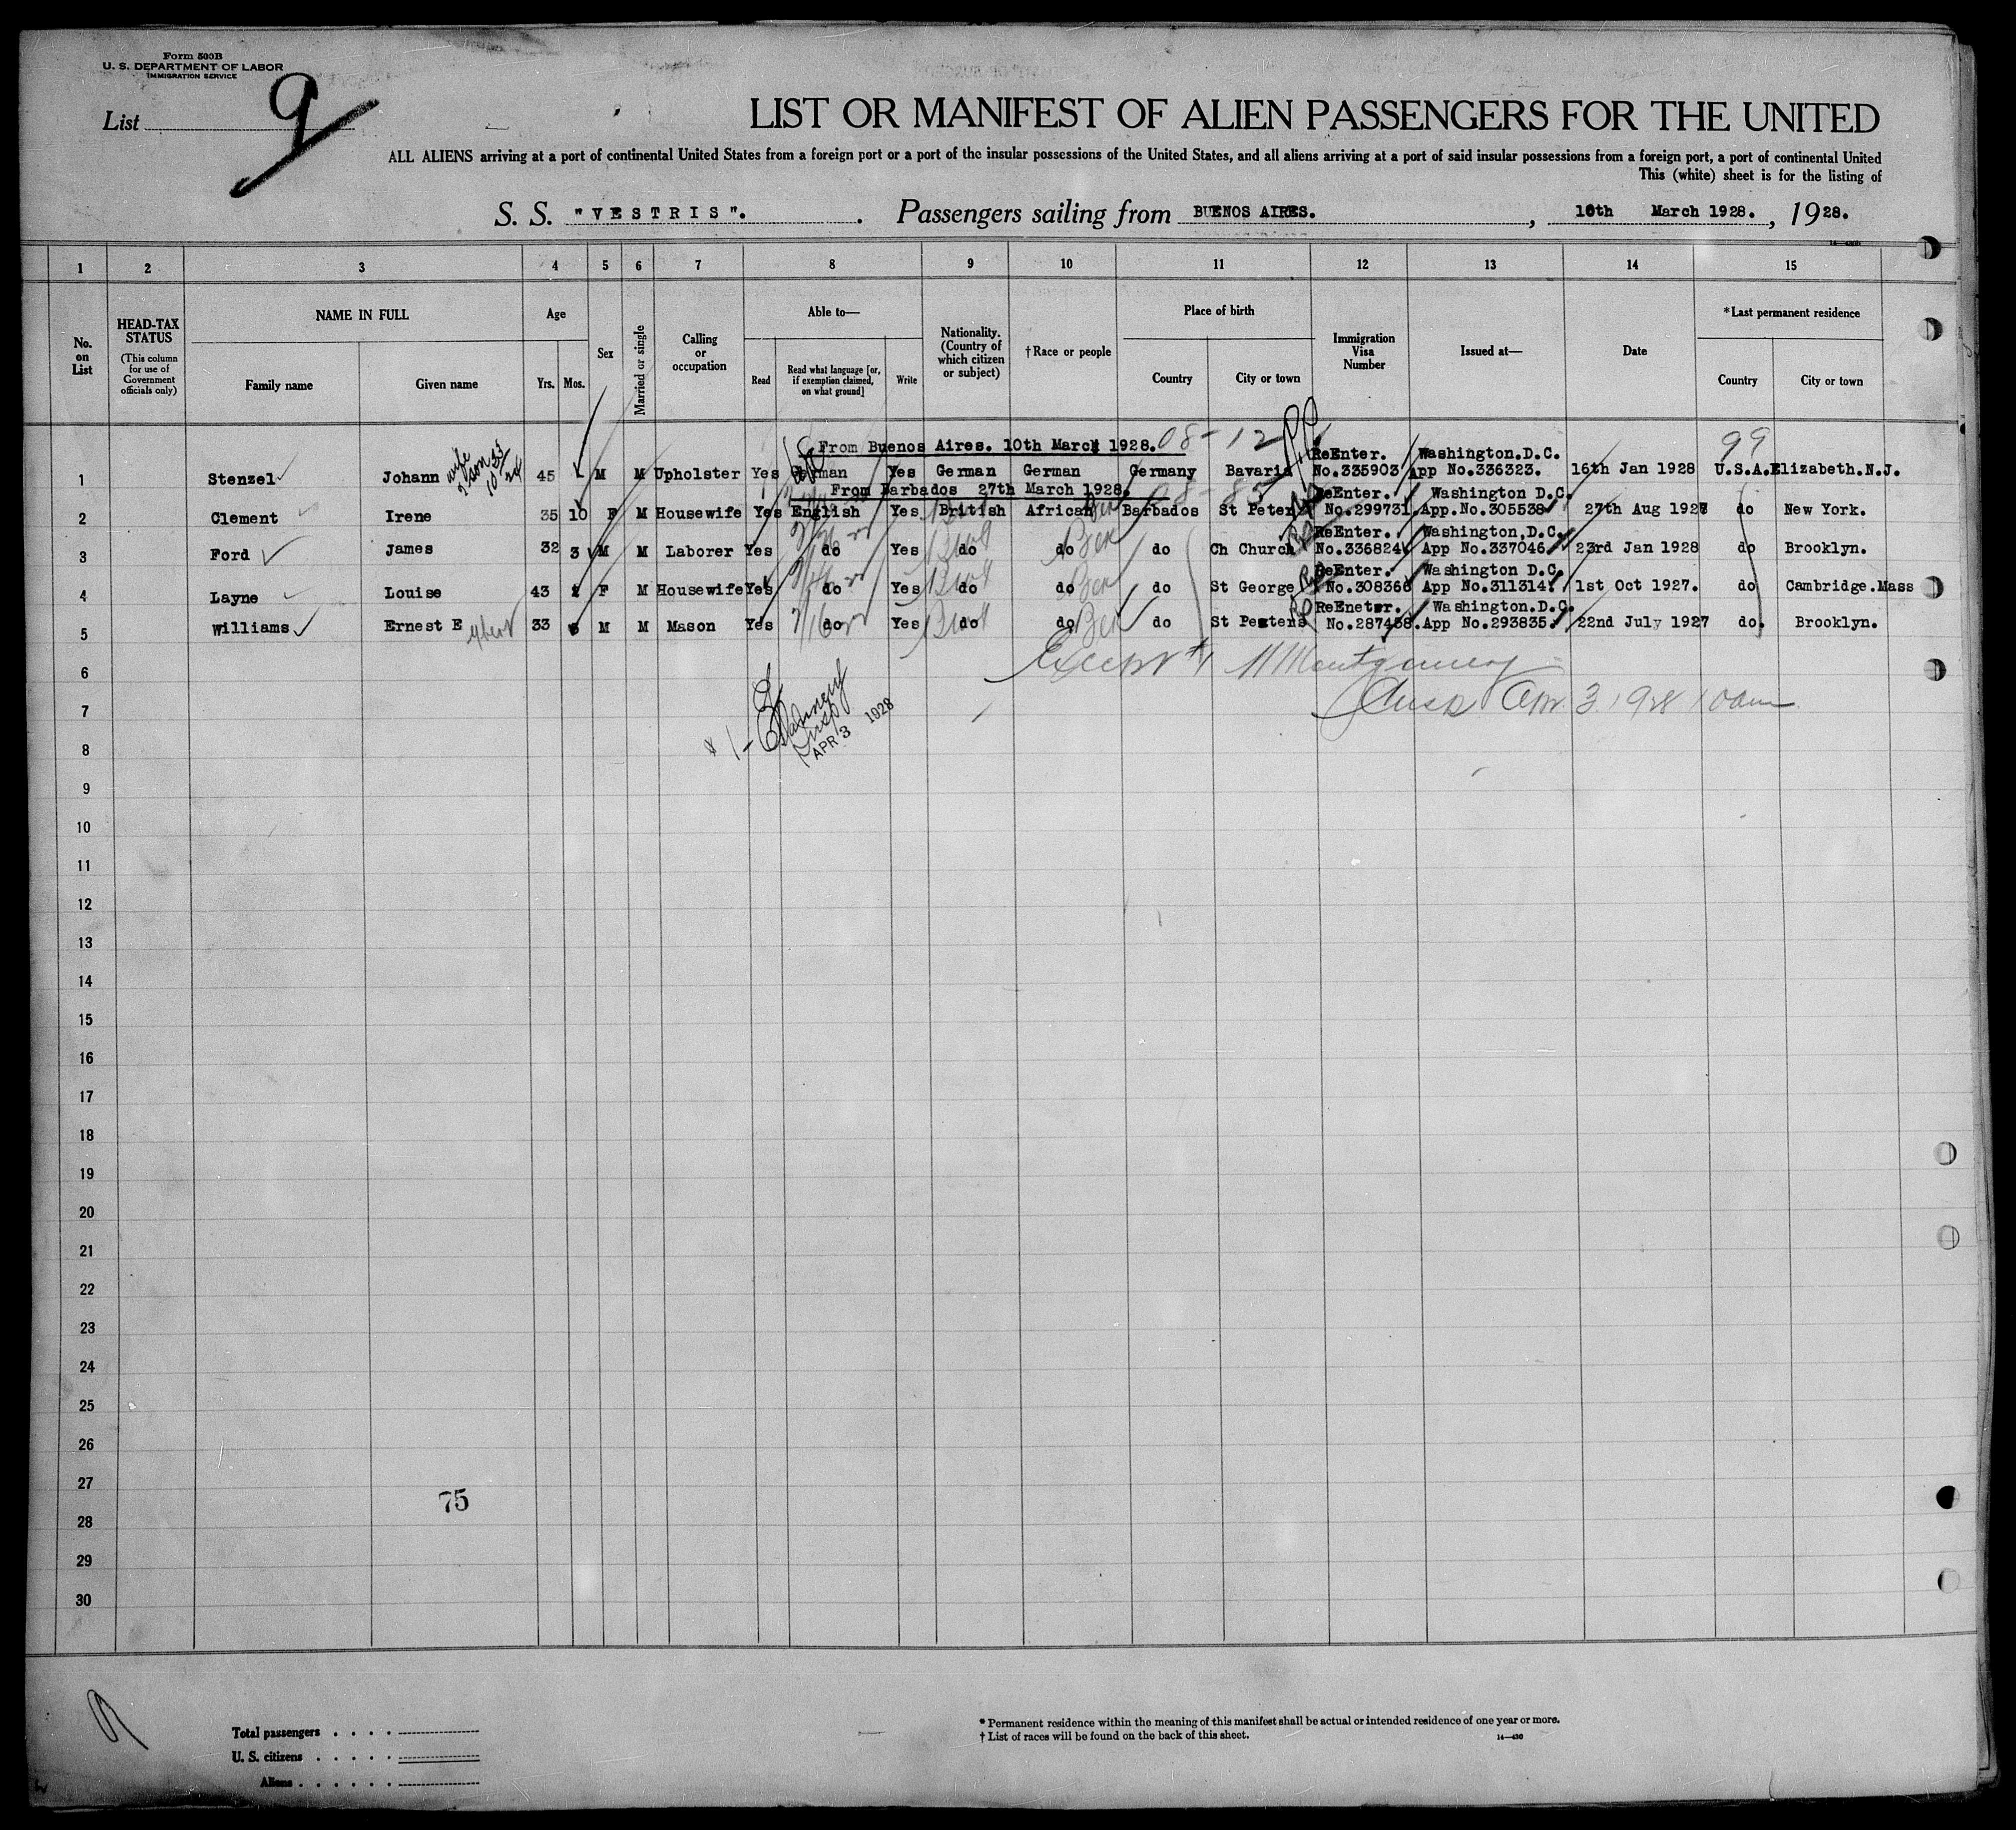 Form 500B
U. S. DEPARTMENT OF LABOR
IMMIGRATION SERVICE
List 9
LIST OR MANIFEST OF ALIEN PASSENGERS FOR THE UNITED
ALL ALIENS arriving at a port of continental United States from a foreign port or a port of the insular possessions of the United States, and all aliens arriving at a port of said insular possessions from a foreign port, a port of continental United
This (white) sheet is for the listing of
S. S. "VESTRIS". Passengers sailing from BUENOS AIRES. , 10th March 1928. , 1928.
1 2 3 4 5 6 7 8 9 10 11 12 13 14 15
No. on List
HEAD-TAX STATUS
(This column for use of Government officials only)
NAME IN FULL
Family name Given name
Age
Yrs. Mos.
Sex
Married or single
Calling or occupation
Able to—
Read
Read what language [or, if exemption claimed, on what ground]
Write
Nationality. (Country of which citizen or subject)
†Race or people
Place of birth
Country City or town
Immigration Visa Number
Issued at—
Date
*Last permanent residence
Country City or town
From Buenos Aires. 10th March 1928. 08-12 99
ReEnter. Washington.D.C.
1 Stenzel Johann wife 45 M M Upholster Yes German Yes German German Germany Bavaria No.335903 App No.336323. 16th Jan 1928 U.S.A. Elizabeth.N.J.
From Barbados 27th March 1928. 08-85
ReEnter. Washington D.C.
2 Clement Irene 35 10 F M Housewife Yes English Yes British African Barbados St Peter No.299731. App.No.305538 27th Aug 1927 do New York.
ReEnter. Washington,D.C.
3 Ford James 32 3 M M Laborer Yes do Yes do do do Ch Church No.336824 App No.337046. 23rd Jan 1928 do Brooklyn.
ReEnter. Washington D.C.
4 Layne Louise 43 F M Housewife Yes do Yes do do do St George No.308366 App No.311314. 1st Oct 1927. do Cambridge.Mass
ReEneter. Washington.D.C.
5 Williams Ernest E 33 M M Mason Yes do Yes do do do St Peters No.287458. App No.293835. 22nd July 1927 do. Brooklyn.
6 Except #1 Montgomery
7 Insp Apr 3 1928 10am
APR 3 1928
8
9
10
11
12
13
14
15
16
17
18
19
20
21
22
23
24
25
26
27
75
28
29
30
9
Total passengers
U. S. citizens
Aliens
* Permanent residence within the meaning of this manifest shall be actual or intended residence of one year or more.
† List of races will be found on the back of this sheet.
14—430